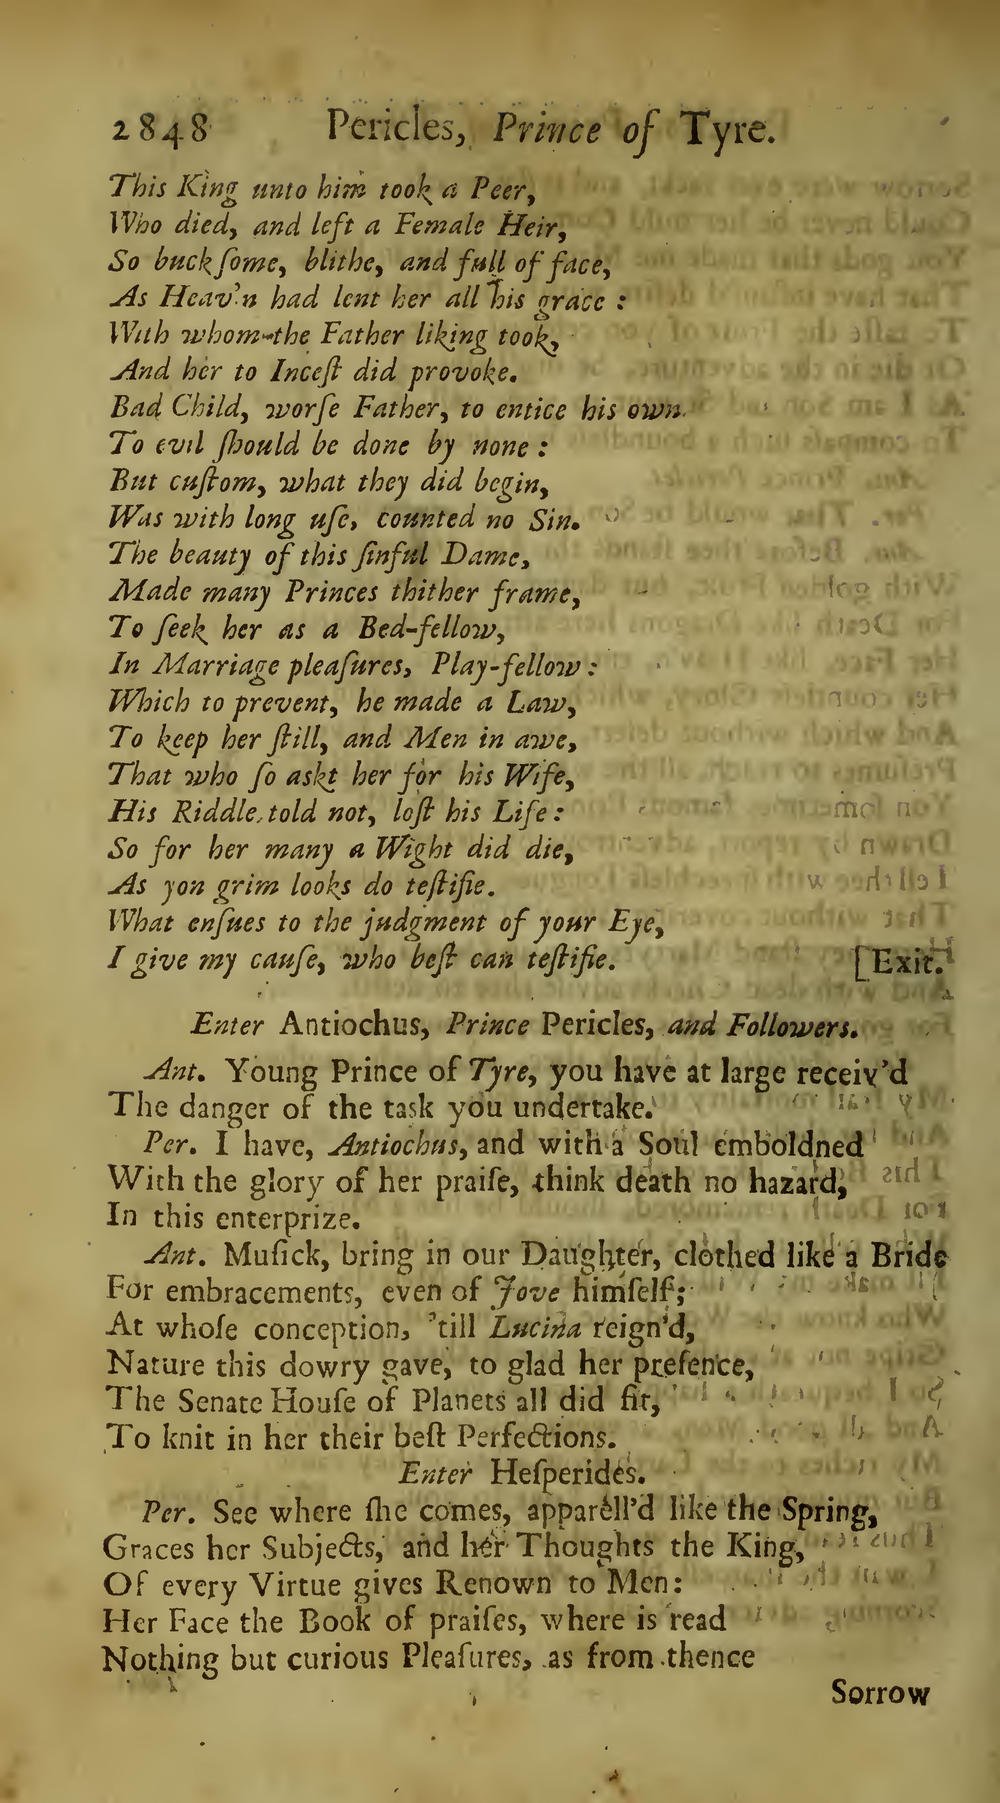 2848 Pericles, Prince of Tyre.
This King unto him took a Peer,
Who died, and left a Female Heir,
So buckſome, blithe, and full of face,
As Heav'n had lent her all his grace :
With whom the Father liking took,
And her to Inceſt did provoke.
Bad Child, worſe Father, to entice his own
To evil ſhould be done by none :
But cuſtom, what they did begin,
Was with long uſe, counted no Sin.
The beauty of this ſinful Dame,
Made many Princes thither frame,
To ſeek her as a Bed-fellow,
In Marriage pleaſures, Play-fellow :
Which to prevent, he made a Law,
To keep her ſtill, and Men in awe,
That who ſo askt her for his Wife,
His Riddle told not, loſt his Life :
So for her many a Wight did die,
As yon grim looks do teſtifie.
What enſues to the judgment of your Eye,
I give my cauſe, who beſt can teſtifie. [Exit.
Enter Antiochus, Prince Pericles, and Followers.
Ant. Young Prince of Tyre, you have at large receiv'd
The danger of the task you undertake.
Per. I have, Antiochus, and with a Soul emboldned
With the glory of her praiſe, think death no hazard,
In this enterprize.
Ant. Muſick, bring in our Daughter, clothed like a Bride
For embracements, even of Jove himſelf;
At whoſe conception, 'till Lucina reign'd,
Nature this dowry gave, to glad her preſence,
The Senate Houſe of Planets all did ſit,
To knit in her their beſt Perfections.
Enter Heſperides.
Per. See where ſhe comes, apparell'd like the Spring,
Graces her Subjects, and her Thoughts the King,
Of every Virtue gives Renown to Men:
Her Face the Book of praiſes, where is read
Nothing but curious Pleaſures, as from thence
Sorrow